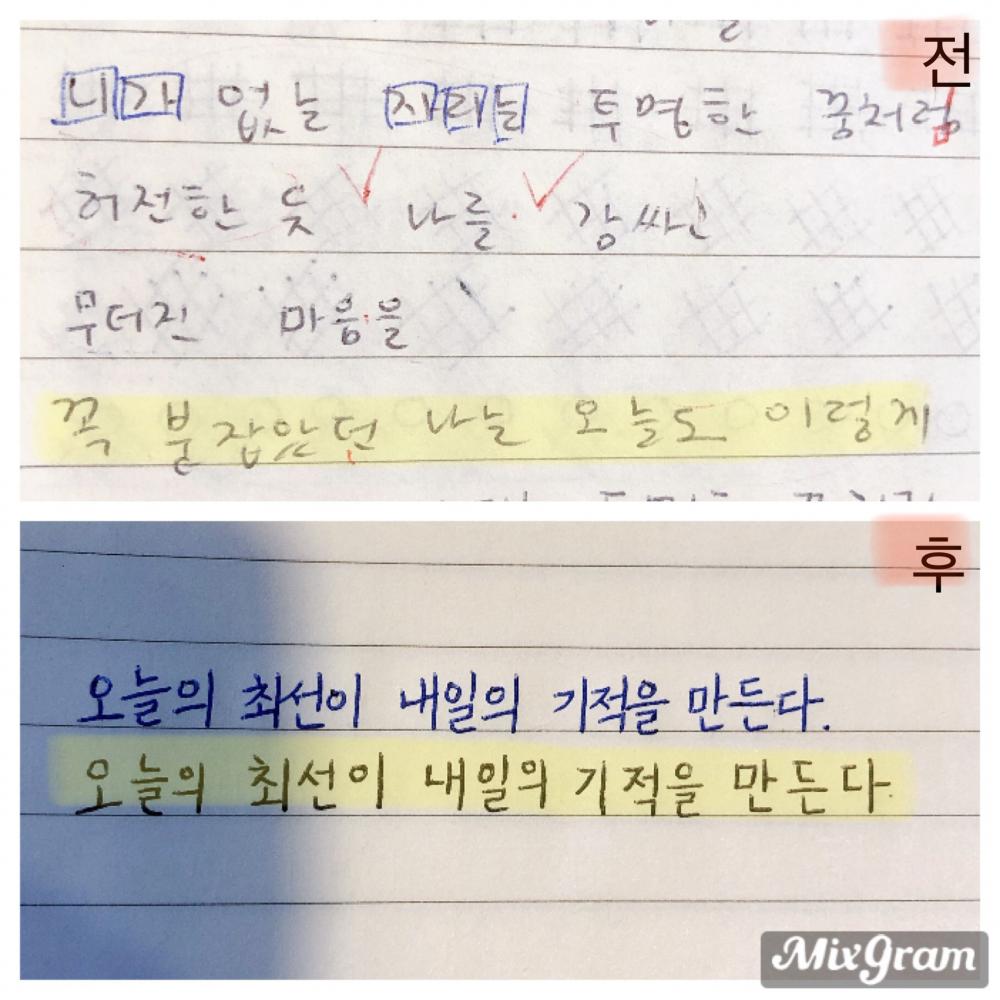 전
니가 없는 자리는 투명한 꿈처럼
허전한 듯 나를 감싸고
무더진 마음을
꼭 붙잡았던 나는 오늘도 이렇게
후
오늘의 최선이 내일의 기적을 만든다.
오늘의 최선이 내일의 기적을 만든다.
MixGram